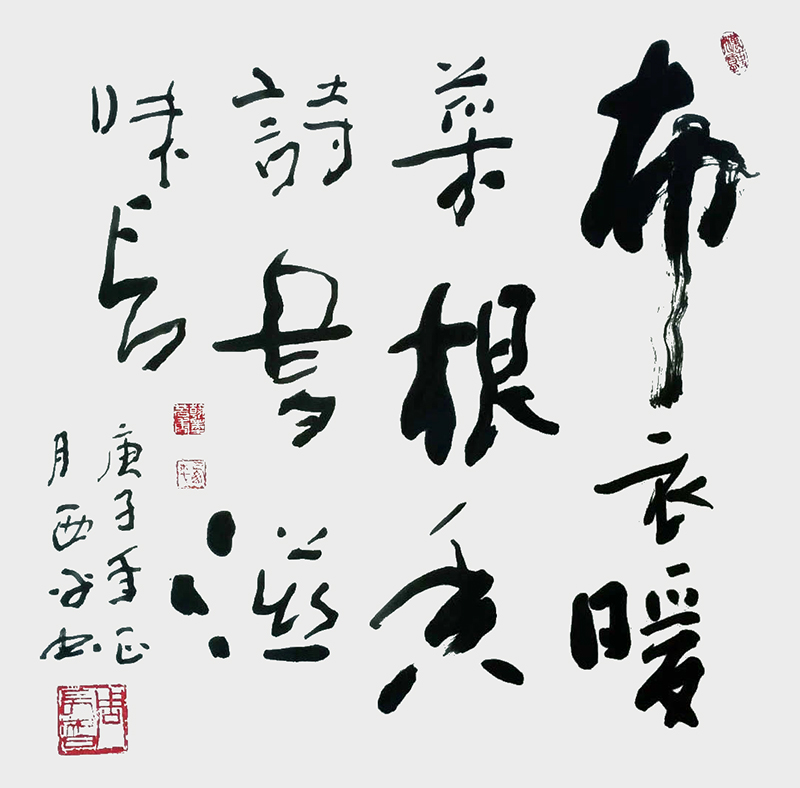 布衣暖
菜根香
詩書滋
味長
庚子年正
月西平书